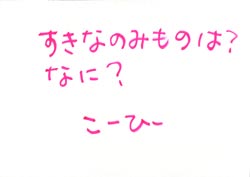 すきなのみものは?
なに?
こーひー